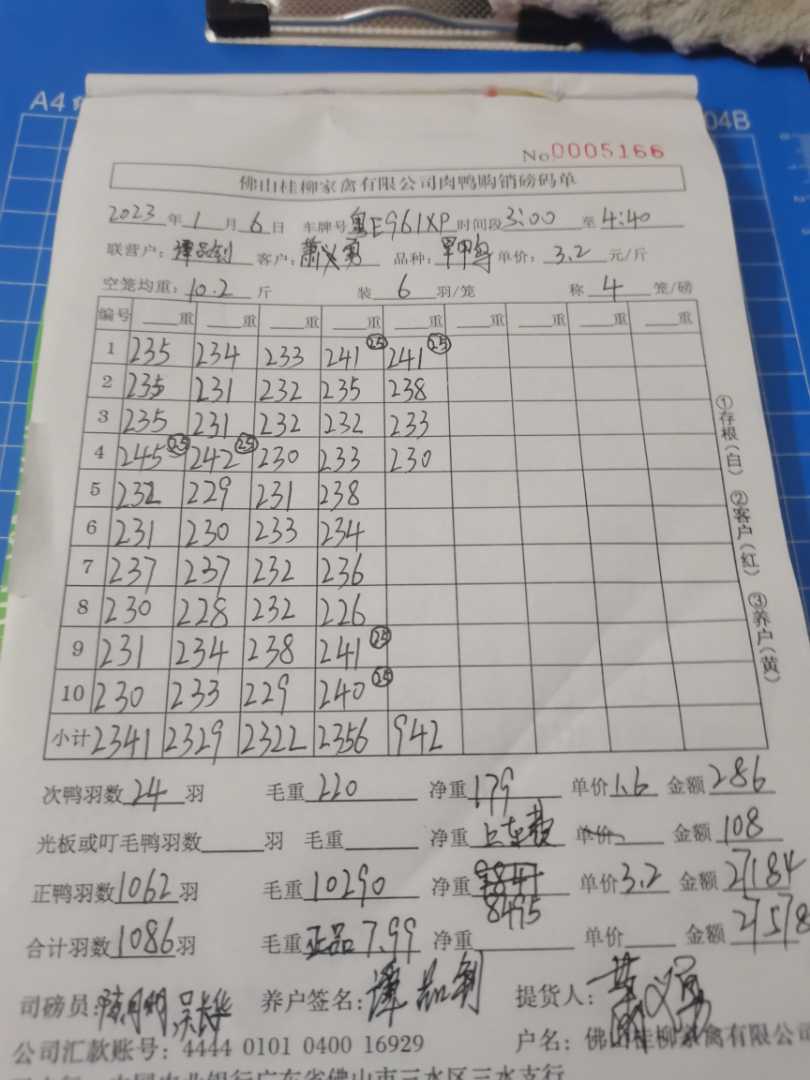 A4
04B
No 0005166
佛山桂柳家禽有限公司肉鸭购销磅码单
2023年1月6日 车牌号粤E961XP时间段3:00至4:40
联营户:谭品钊 客户:萧义勇 品种:单价:3.2元/斤
空笼均重:10.2斤 装6羽/笼 称4笼/磅
编号 重 重 重 重 重 重 重 重 重
1 235 234 233 241 25 241 25
2 235 231 232 235 238
3 235 231 232 232 233
4 245 25 242 25 230 233 230
5 232 229 231 238
6 231 230 233 234
7 237 237 232 236
8 230 228 232 226
9 231 234 238 241 25
10 230 233 229 240 25
小计 2341 2329 2322 2356 942
①存根(白) ②客户(红) ③养户(黄)
次鸭羽数24羽 毛重220 净重179 单价1.6 金额286
光板或叮毛鸭羽数 羽 毛重 净重上车费 单价 金额108
正鸭羽数1062羽 毛重10290 净重8495 单价3.2 金额27184
合计羽数1086羽 毛重正品7.99 净重 单价 金额27578
司磅员: 养户签名:谭品钊 提货人:
公司汇款账号:4444 0101 0400 16929 户名:佛山桂柳家禽有限公